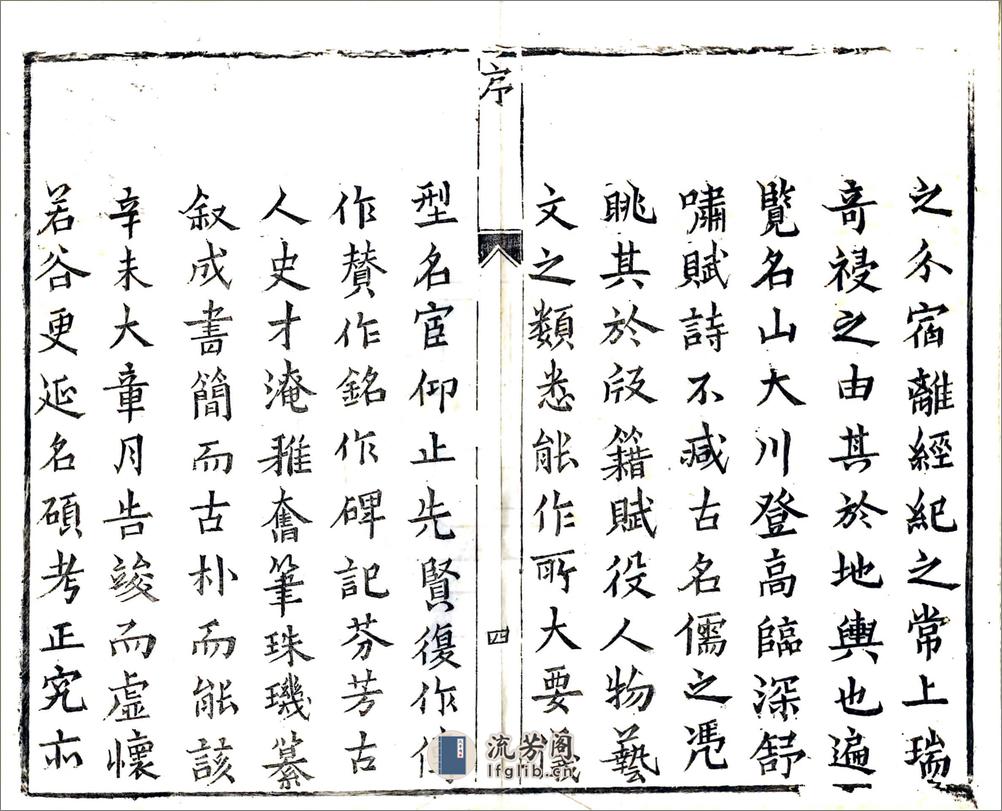 之分宿離經紀之常上瑞
奇祲之由其於地輿也遍
覽名山大川登高臨深舒
嘯賦詩不减古名儒之凴
眺其於版籍賦役人物藝
文之類悉能作所大要
序
四
型名宦仰止先賢復作
作賛作銘作碑記芬芳古
人史才淹雅奮筆珠璣纂
叙成書簡而古朴而能該
辛未大章月告竣而虛懷
若谷更延名碩考正究亦
流芳閣
lfglib.cn